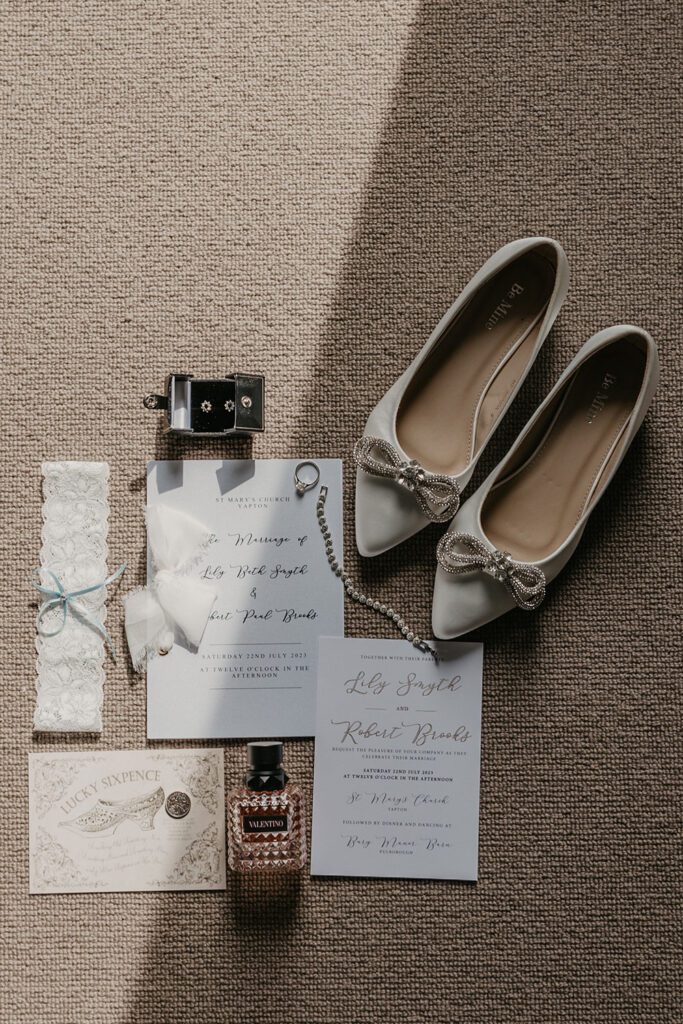 Be Mine
Be Mine
ST MARY'S CHURCH,
YAPTON
The Marriage of
Lily Beth Smyth
&
Robert Paul Brooks
SATURDAY 22ND JULY 2023
AT TWELVE O'CLOCK IN THE
AFTERNOON
TOGETHER WITH THEIR PARENTS
Lily Smyth
AND
Robert Brooks
REQUEST THE PLEASURE OF YOUR COMPANY AS THEY
CELEBRATE THEIR MARRIAGE
SATURDAY 22ND JULY 2023
AT TWELVE O'CLOCK IN THE AFTERNOON
St Mary's Church
YAPTON
FOLLOWED BY DINNER AND DANCING AT
Bury Manor Barn
PULBOROUGH
LUCKY SIXPENCE
VALENTINO